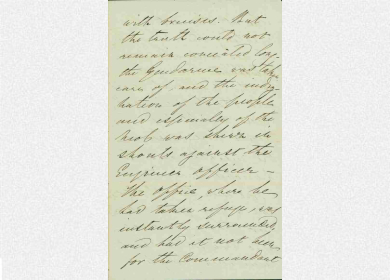 with bruises. But
the truth could not
remain concealed long
the Gendarme was tak
care of, and the indig
nation of the people
and especially of the
mob was shown in
shouts against the
Engineer officer –
The office, where he
had taken refuge, was
instantly surrounded,
and had it not been
for the Commandant